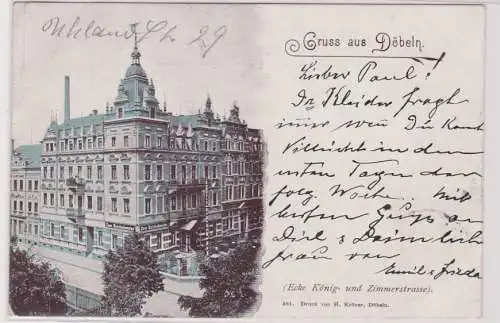 Uhland Str 29
Gruss aus Döbeln.
Lieber Paul!
Dr. Kleider fragt
immer wen Du kommst
Villeicht in den
ersten Tagen der
folg. Woche. Mit
besten Gruss an
Dich &
frau von
Emil & Frieda
(Ecke König- und Zimmerstrasse).
Druck von H. Döbeln.